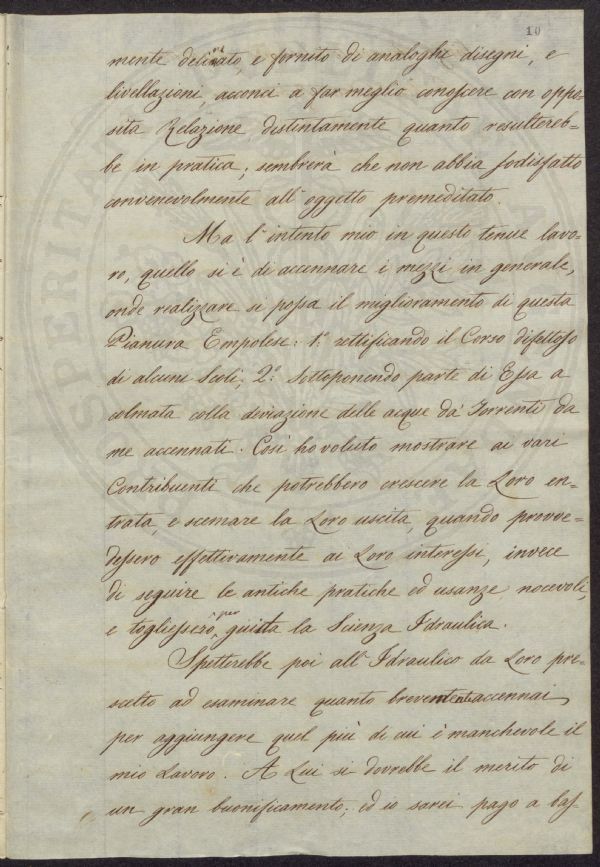 10
mente delineato, e fornito di analoghi disegni, e
livellazioni, acconci a far meglio conoscere con oppo=
sita Relazione distintamente quanto resultereb=
be in pratica; sembrerà che non abbia sodisfatto
convenevolmente all' oggetto premeditato.
Ma l' intento mio in questo tenue lavo=
ro, quello si è di accennare i mezzi in generale,
onde realizzare si possa il miglioramento di questa
Pianura Empolese: 1.º rettificando il Corso difettoso
di alcuni Scoli; 2.º Sottoponendo parte di Essa a
colmata colla deviazione delle acque da' Torrenti da
me accennati. Così ho voluto mostrare ai vari
Contribuenti che potrebbero crescere la Loro en=
trata, e scemare la Loro uscita, quando provve=
dessero effettivamente ai Loro interessi, invece
di seguire le antiche pratiche ed usanze nocevoli,
e togliessero, per guida la Scienza Idraulica.
Spetterebbe poi all' Idraulico da Loro pre=
scelto ad esaminare quanto brevemente accennai,
per aggiungere quel più di cui è manchevole il
mio Lavoro. A Lui si dovrebbe il merito di
un gran buonificamento; ed io sarei pago a bas=